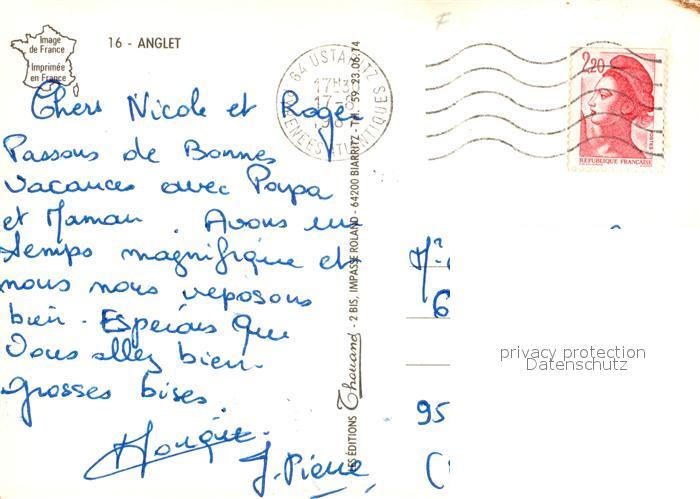 Image
de France
Imprimée
en France
16 - ANGLET
64 USTARITZ
PYRENEES ATLANTIQUES
2,20
POSTES
REPUBLIQUE FRANÇAISE
Chers Nicole et Roger
Passons de Bonnes
vacances avec Papa
et Maman. Avons un
temps magnifique et
nous nous reposons
bien. Esperons que
Vous allez bien.
grosses bises.
J. Pierre
LES EDITIONS Thouand - 2 BIS, IMPASSE ROLAND - 64200 BIARRITZ - Tél. 59.23.06.14
6
95
(
privacy protection
Datenschutz